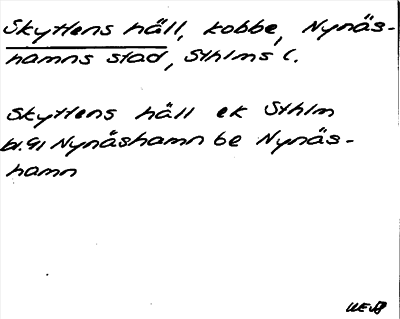 Skyttens häll, kobbe, Nynäs-
hamns stad, Sthlms l.
Skyttens häll ek Sthlm
bl. 91 Nynäshamn be Nynäs-
hamn